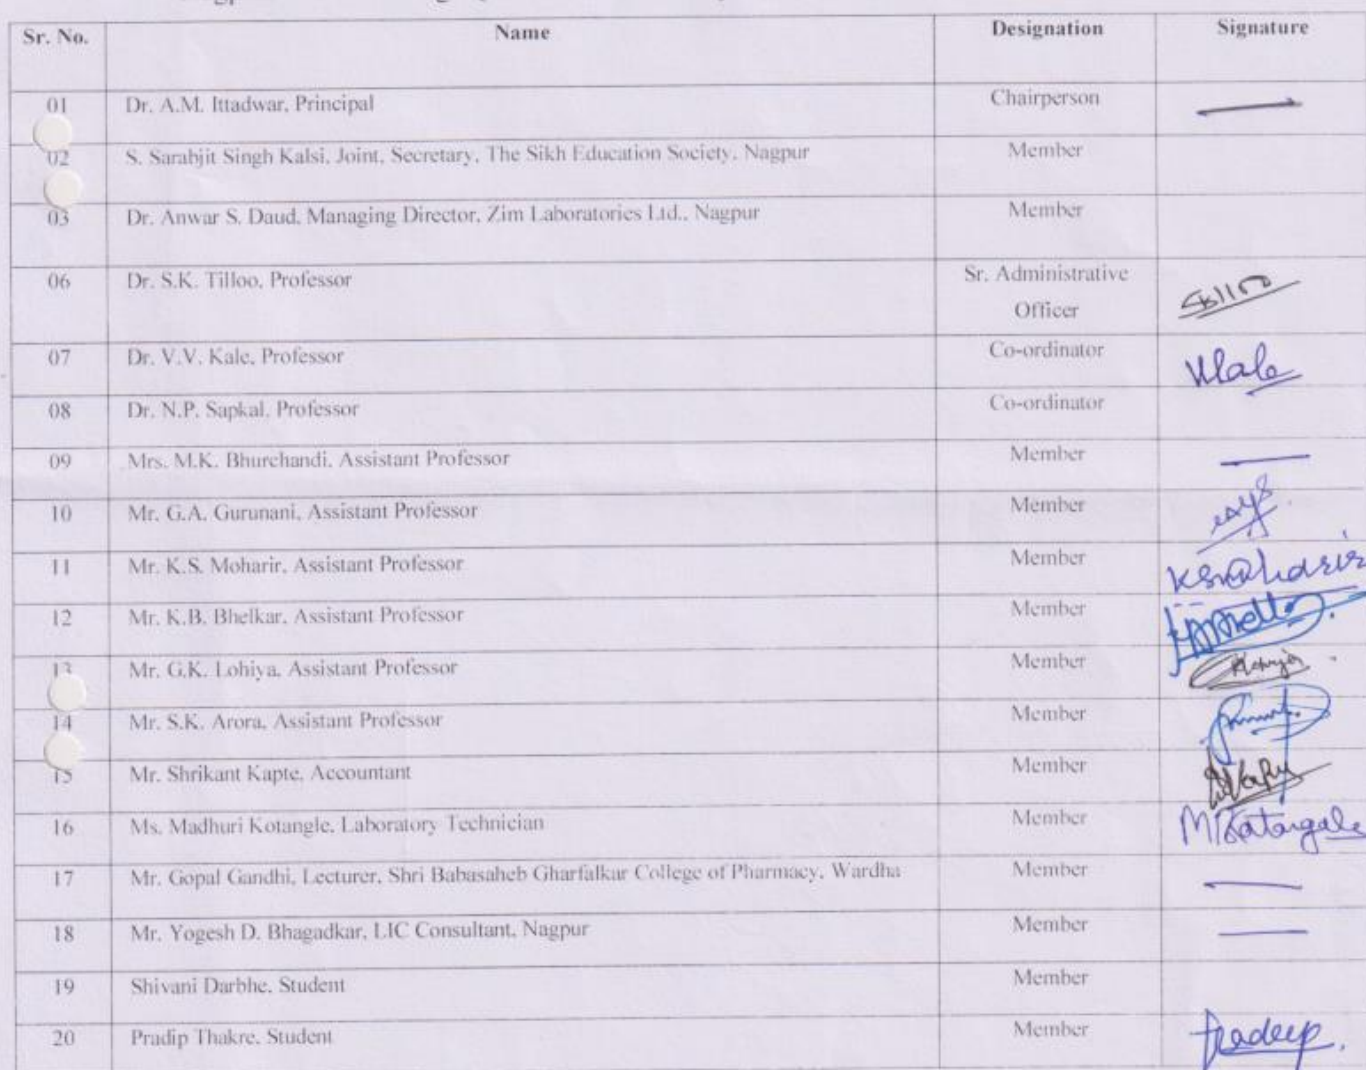 Sr. No. Name Designation Signature
01 Dr. A.M. Ittadwar, Principal Chairperson
02 S. Sarabjit Singh Kalsi, Joint, Secretary, The Sikh Education Society, Nagpur Member
03 Dr. Anwar S. Daud, Managing Director, Zim Laboratories Ltd., Nagpur Member
06 Dr. S.K. Tilloo, Professor Sr. Administrative
Officer
07 Dr. V.V. Kale, Professor Co-ordinator VKale
08 Dr. N.P. Sapkal, Professor Co-ordinator
09 Mrs. M.K. Bhurchandi, Assistant Professor Member
10 Mr. G.A. Gurunani, Assistant Professor Member
11 Mr. K.S. Moharir, Assistant Professor Member KSMoharir
12 Mr. K.B. Bhelkar, Assistant Professor Member
13 Mr. G.K. Lohiya, Assistant Professor Member
14 Mr. S.K. Arora, Assistant Professor Member
15 Mr. Shrikant Kapte, Accountant Member
16 Ms. Madhuri Kotangle, Laboratory Technician Member
17 Mr. Gopal Gandhi, Lecturer, Shri Babasaheb Gharfalkar College of Pharmacy, Wardha Member
18 Mr. Yogesh D. Bhagadkar, LIC Consultant, Nagpur Member
19 Shivani Darbhe, Student Member
20 Pradip Thakre, Student Member Pradeep.